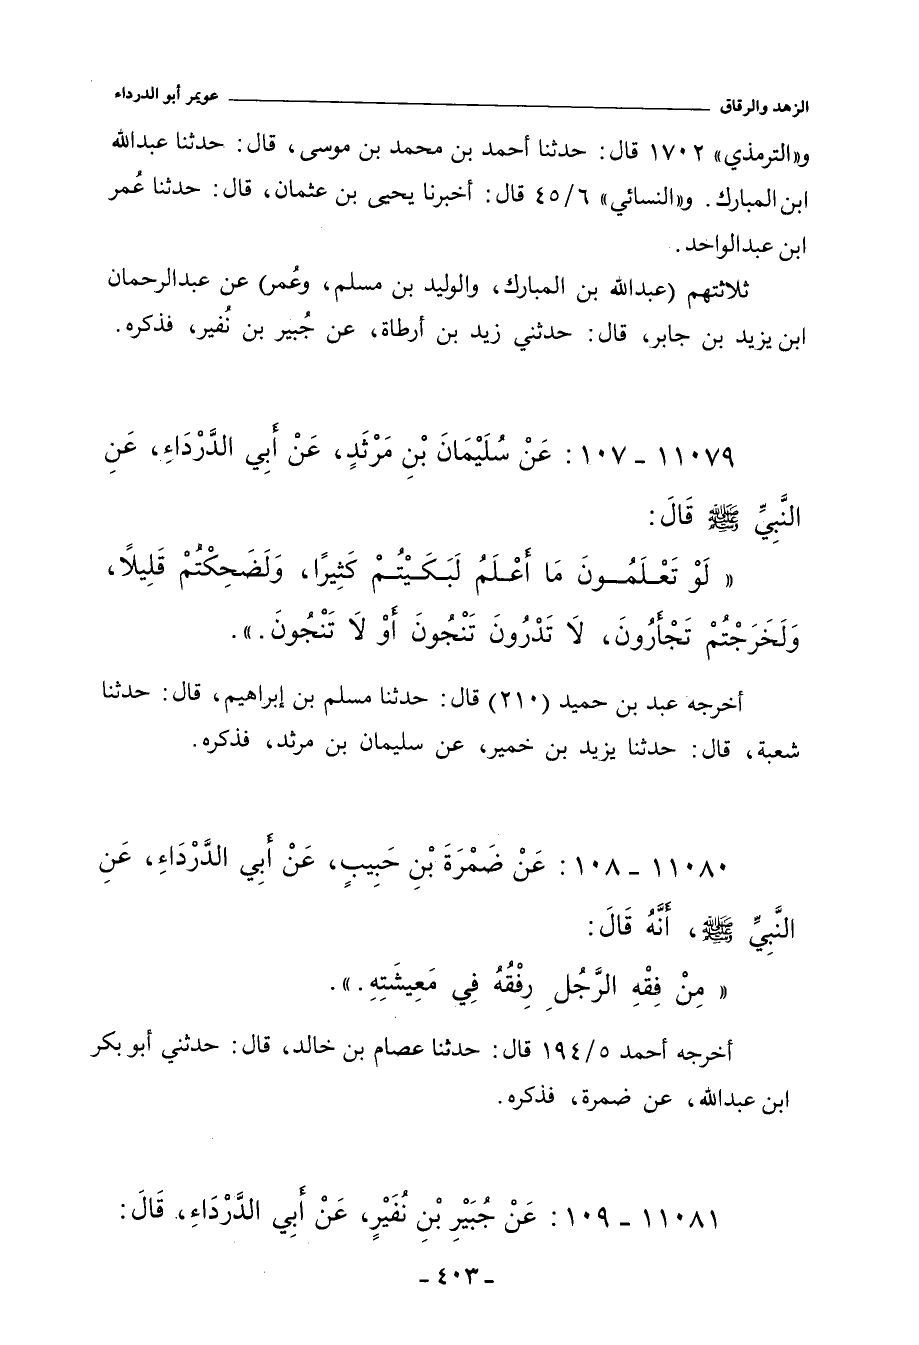 الزهد والرقاق ــــــــــــــــــــ عويمر أبو الدرداء
و«الترمذي» ١٧٠٢ قال: حدثنا أحمد بن محمد بن موسى، قال: حدثنا عبدالله
ابن المبارك. و«النسائي» ٤٥/٦ قال: أخبرنا يحيى بن عثمان، قال: حدثنا عُمر
ابن عبدالواحد.
ثلاثتهم (عبدالله بن المبارك، والوليد بن مسلم، وعُمر) عن عبدالرحمان
ابن يزيد بن جابر، قال: حدثني زيد بن أرطاة، عن جُبير بن نُفير، فذكره.
١١٠٧٩ - ١٠٧: عَنْ سُلَيْمَانَ بْنِ مَرْثَدٍ، عَنْ أَبِي الدَّرْدَاءِ، عَنِ
النَّبِيِّ ﷺ قَالَ:
« لَوْ تَعْلَمُونَ مَا أَعْلَمُ لَبَكَيْتُمْ كَثِيرًا، وَلَضَحِكْتُمْ قَلِيلاً،
وَلَخَرَجْتُمْ تَجْأَرُونَ، لاَ تَدْرُونَ تَنْجُونَ أَوْ لاَ تَنْجُونَ.».
أخرجه عبد بن حميد (٢١٠) قال: حدثنا مسلم بن إبراهيم، قال: حدثنا
شعبة، قال: حدثنا يزيد بن خمير، عن سليمان بن مرثد، فذكره.
١١٠٨٠ - ١٠٨: عَنْ ضَمْرَةَ بْنِ حَبِيبٍ، عَنْ أَبِي الدَّرْدَاءِ، عَنِ
النَّبِيِّ ﷺ، أَنَّهُ قَالَ:
« مِنْ فِقْهِ الرَّجُلِ رِفْقُهُ فِي مَعِيشَتِهِ.».
أخرجه أحمد ١٩٤/٥ قال: حدثنا عصام بن خالد، قال: حدثني أبو بكر
ابن عبدالله، عن ضمرة، فذكره.
١١٠٨١ - ١٠٩: عَنْ جُبَيْرِ بْنِ نُفَيْرٍ، عَنْ أَبِي الدَّرْدَاءِ، قَالَ:
- ٤٠٣ -